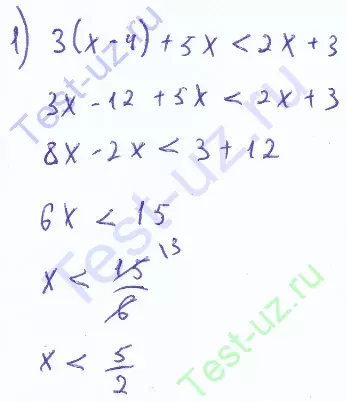 1) 3(x-4)+5x<2x+3
3x-12+5x<2x+3
8x-2x<3+12
6x<15
x<15/6 |3
x<5/2
Test-uz.ru
Test-uz.ru
Test-uz.ru